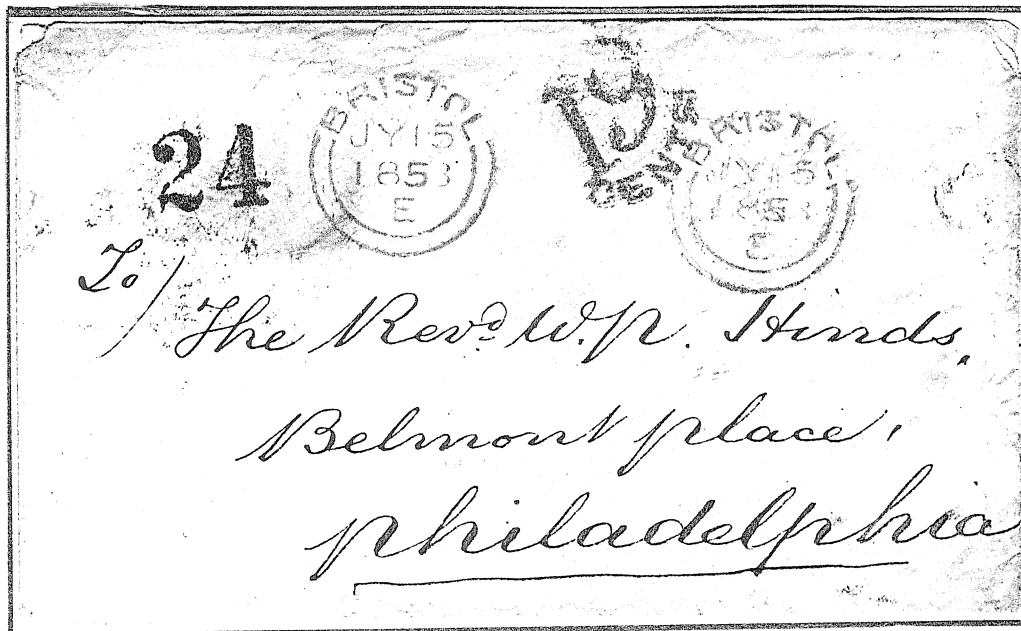 24
BRISTOL
JY 15
1853
E
19
CENTS
BRISTOL
JY 15
1853
To/
The Revd. W.P. Hinds.
Belmont place,
Philadelphia